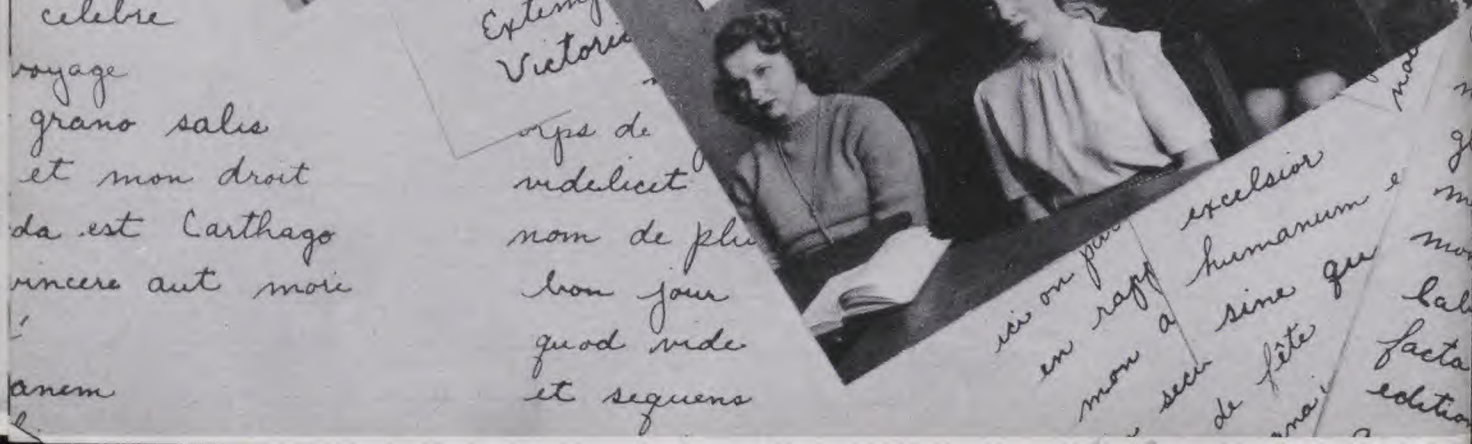 celebre
voyage
grano salis
et mon droit
da est Carthago
vincere aut mori
anem
Extemp
Victoria
orps de
videlicet
nom de plu
bon jour
quod vide
et sequens
ici on par
en rapp
mon a
secu
excelsior
humanum e
sine qu
de fête
mo
facta
edition